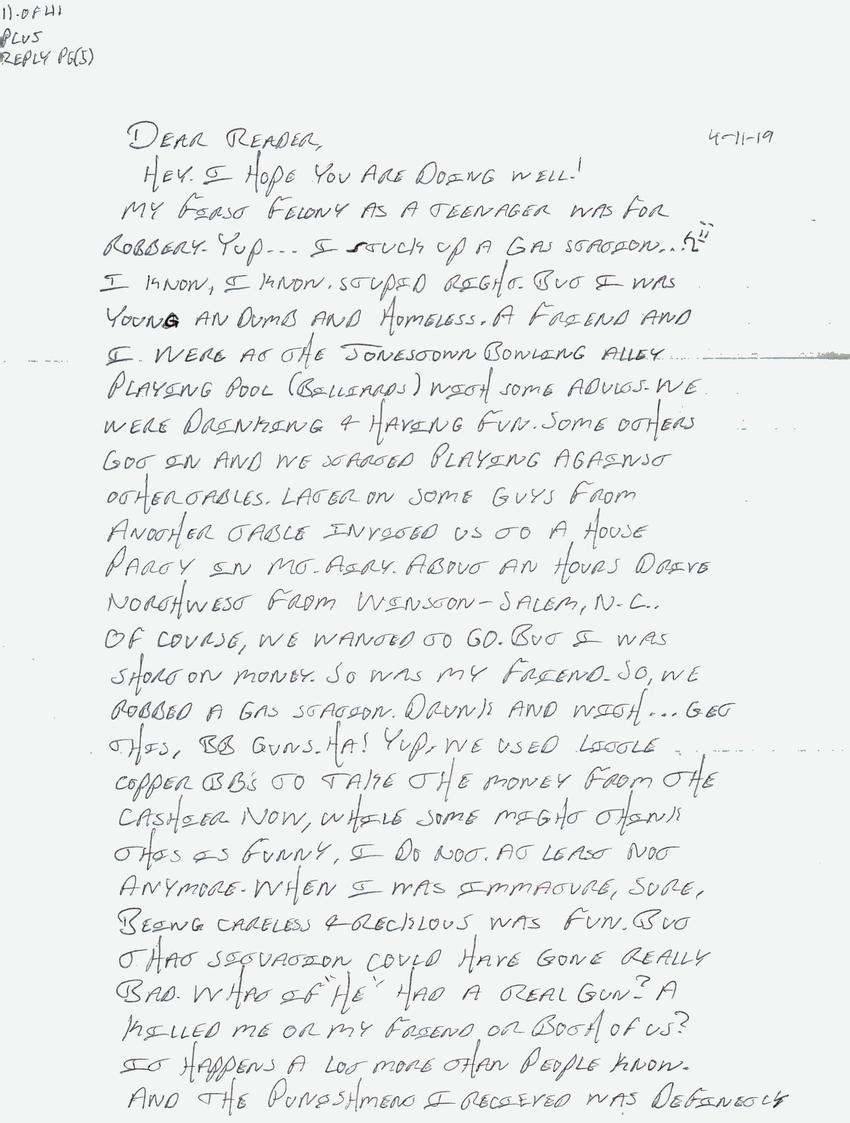 1). OF 4
PLUS
REPLY PG(5)
DEAR READER,
4-11-19
HEY. I HOPE YOU ARE DOING WELL!
MY FIRST FELONY AS A TEENAGER WAS FOR
ROBBERY. YUP... I STUCK UP A GAS STATION...
I KNOW, I KNOW. STUPID RIGHT. BUT I WAS
YOUNG AN DUMB AND HOMELESS. A FRIEND AND
I WERE AT THE JONESTOWN BOWLING ALLEY
PLAYING POOL (BILLIARDS) WITH SOME ADULTS. WE
WERE DRINKING & HAVING FUN. SOME OTHERS
GOT IN AND WE STARTED PLAYING AGAINST
OTHER TABLES. LATER ON SOME GUYS FROM
ANOTHER TABLE INVITED US TO A HOUSE
PARTY IN MT. AIRY. ABOUT AN HOURS DRIVE
NORTHWEST FROM WINSTON-SALEM, N.C..
OF COURSE, WE WANTED TO GO. BUT I WAS
SHORT ON MONEY. SO WAS MY FRIEND. SO, WE
ROBBED A GAS STATION. DRUNK AND WITH... GET
THIS, BB GUNS. HA! YUP, WE USED LITTLE
COPPER BB'S TO TAKE THE MONEY FROM THE
CASHIER NOW, WHILE SOME MIGHT THINK
THIS IS FUNNY, I DO NOT. AT LEAST NOT
ANYMORE. WHEN I WAS IMMATURE, SURE,
BEING CARELESS & RECKLOUS WAS FUN. BUT
THAT SITUATION COULD HAVE GONE REALLY
BAD. WHAT IF "HE" HAD A REAL GUN? A
KILLED ME OR MY FRIEND OR BOTH OF US?
IT HAPPENS A LOT MORE THAN PEOPLE KNOW.
AND THE PUNISHMENT I RECIEVED WAS DEFINETLY